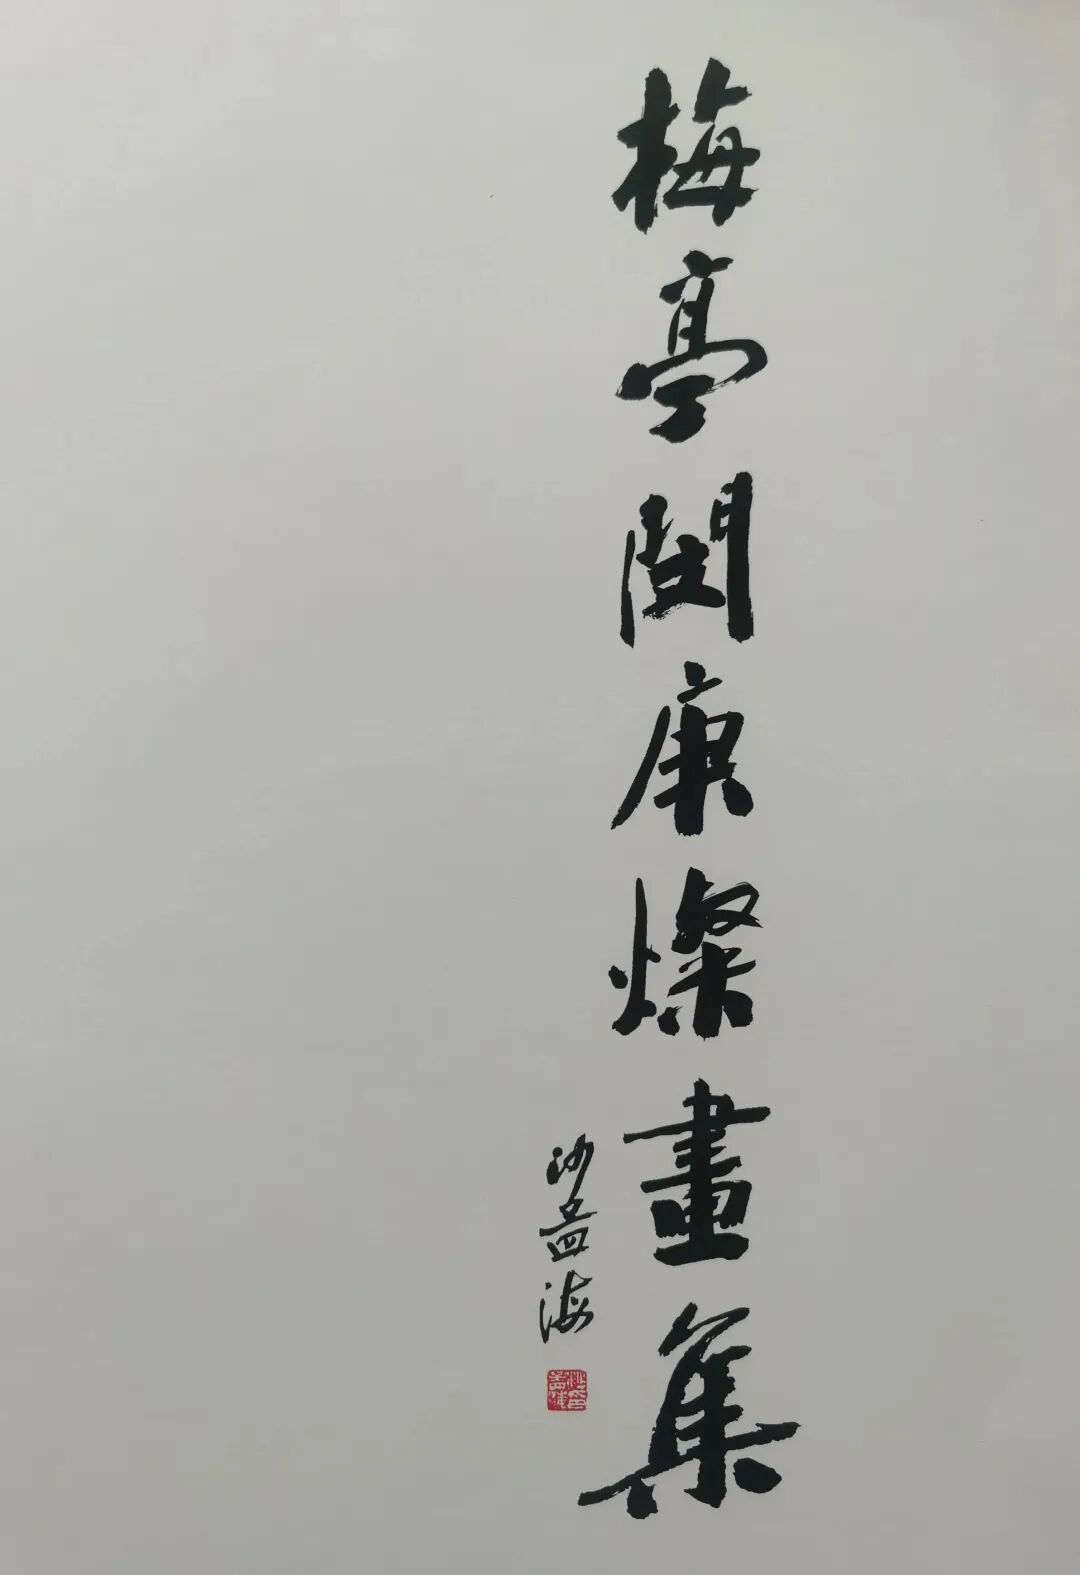 梅亭閔庚燦畫集
沙孟海